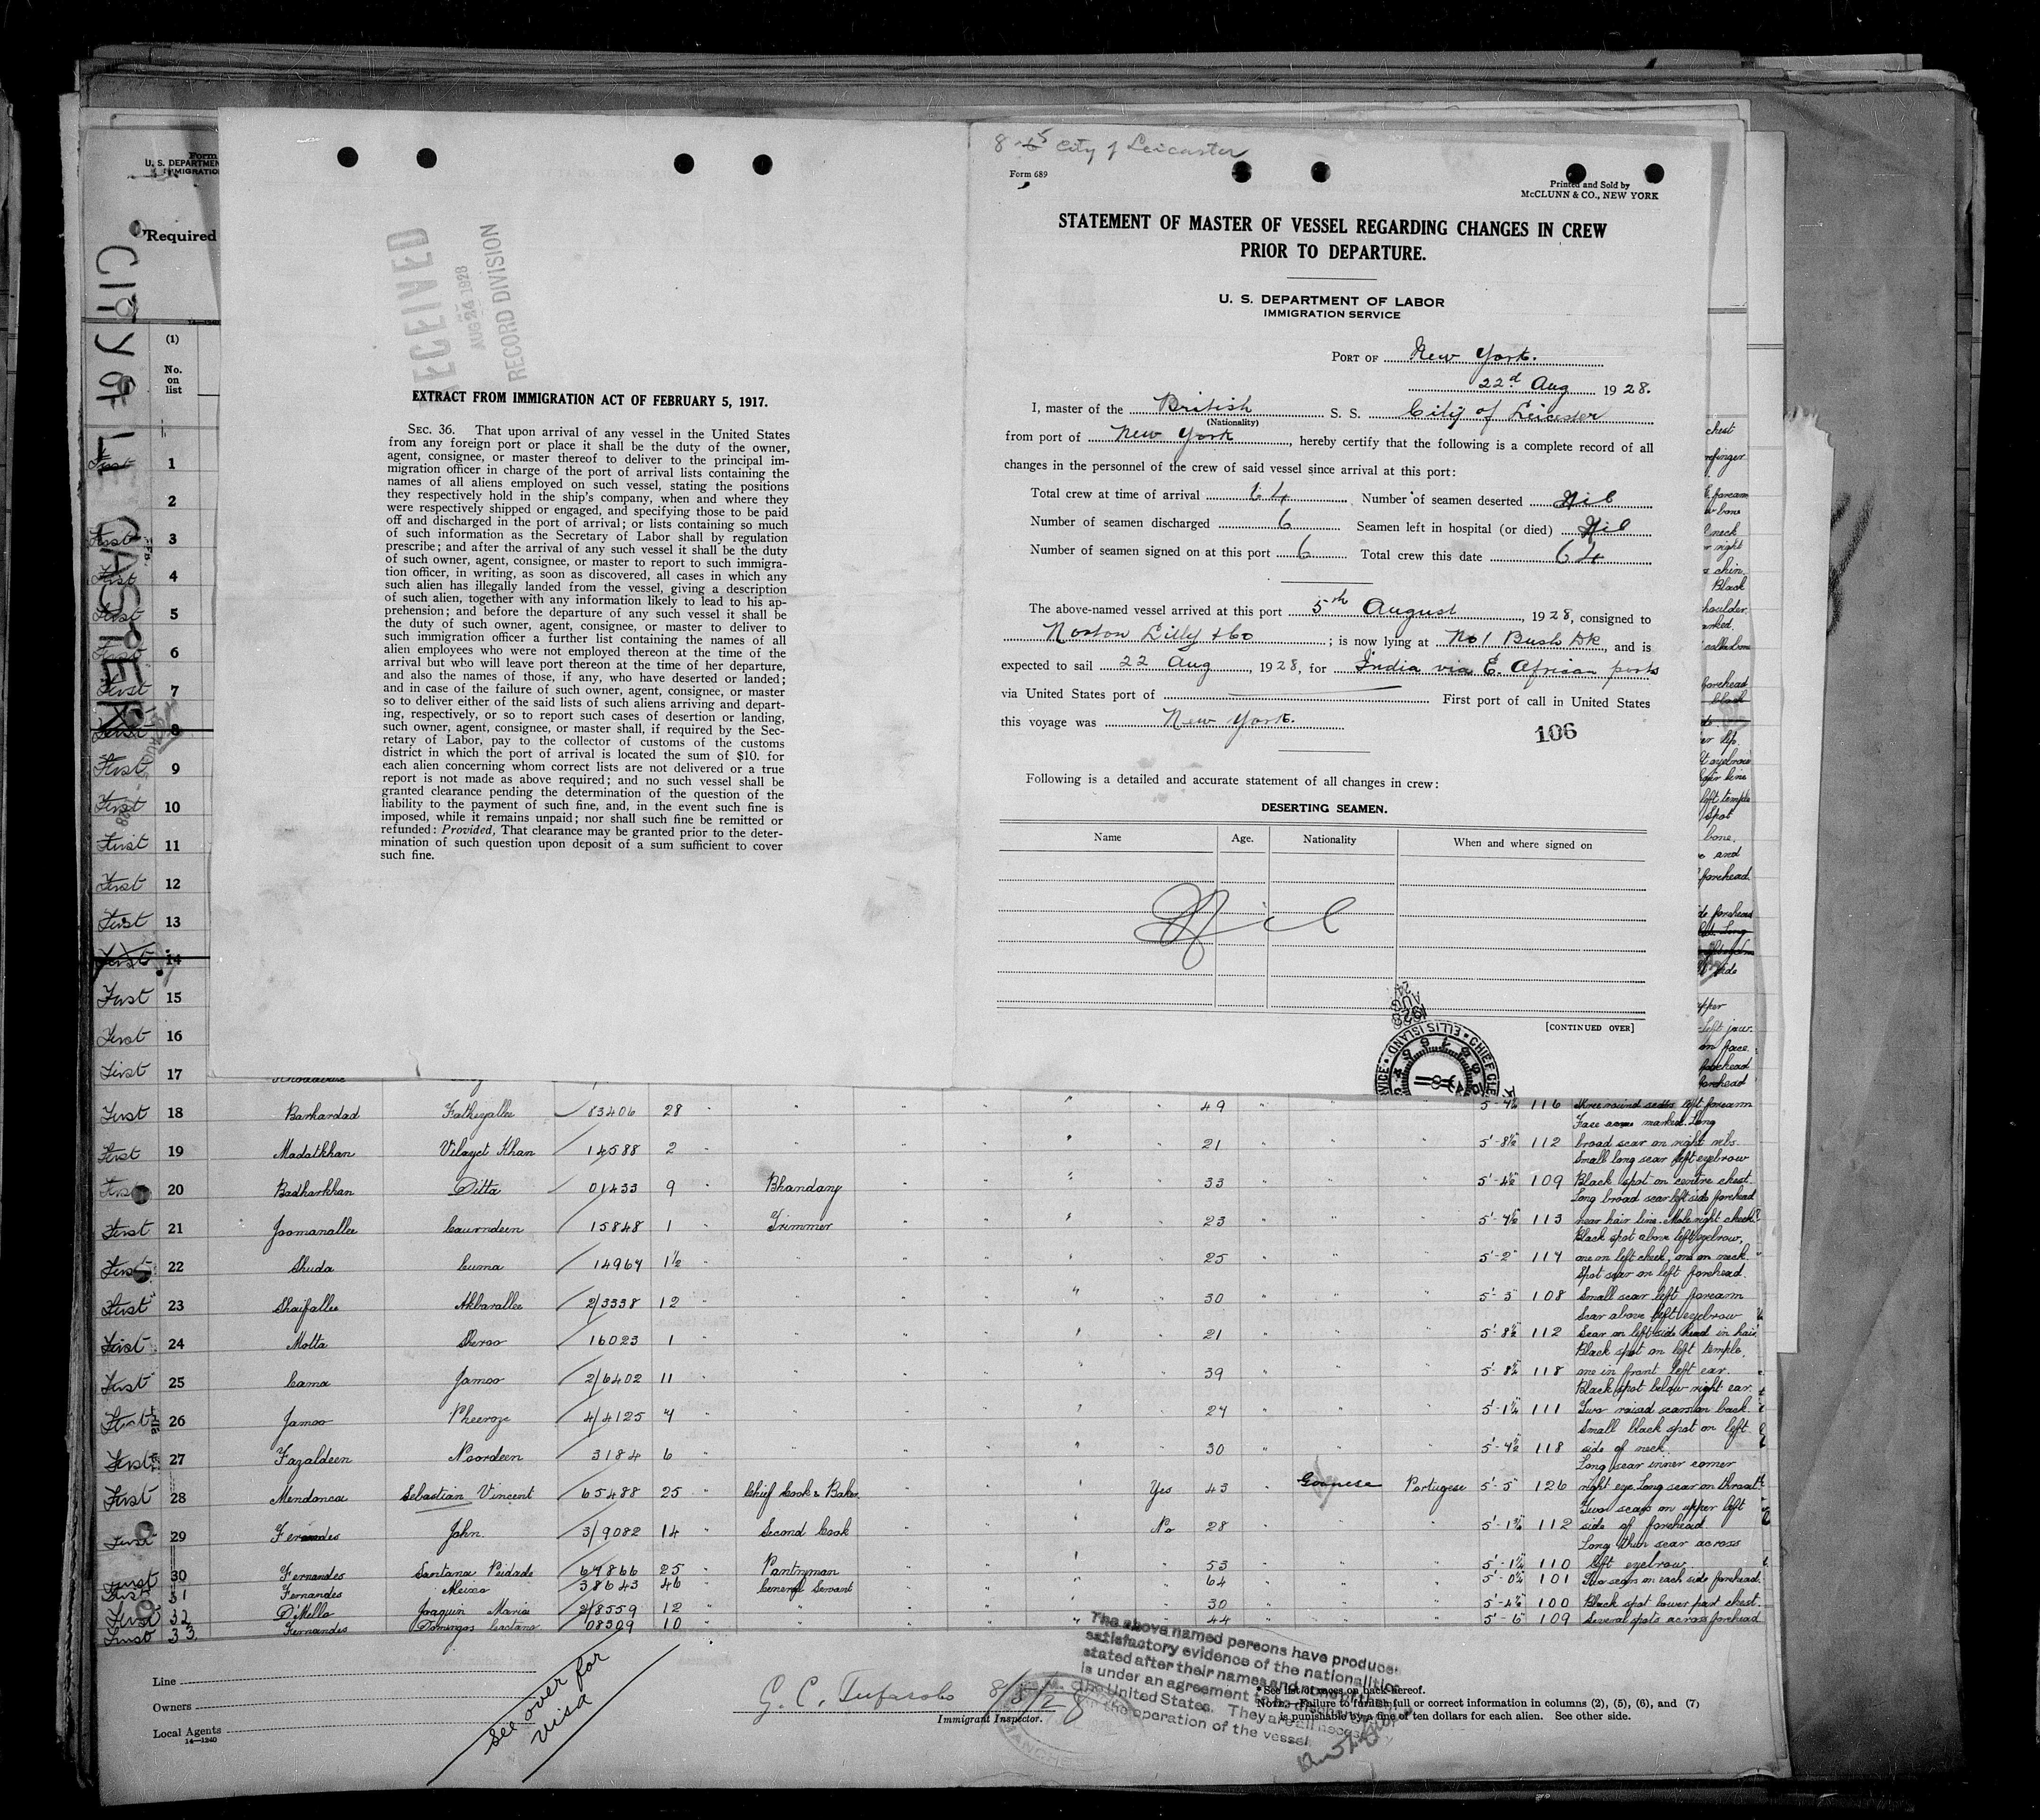 Form
U. S. DEPARTMEN
IMMIGRATIO
Required
CITY OF LEICASTER
(1)
No.
on
list
RECEIVED
AUG 24 1928
RECORD DIVISION
EXTRACT FROM IMMIGRATION ACT OF FEBRUARY 5, 1917.
SEC. 36. That upon arrival of any vessel in the United States
from any foreign port or place it shall be the duty of the owner,
agent, consignee, or master thereof to deliver to the principal im-
migration officer in charge of the port of arrival lists containing the
names of all aliens employed on such vessel, stating the positions
they respectively hold in the ship's company, when and where they
were respectively shipped or engaged, and specifying those to be paid
off and discharged in the port of arrival; or lists containing so much
of such information as the Secretary of Labor shall by regulation
prescribe; and after the arrival of any such vessel it shall be the duty
of such owner, agent, consignee, or master to report to such immigra-
tion officer, in writing, as soon as discovered, all cases in which any
such alien has illegally landed from the vessel, giving a description
of such alien, together with any information likely to lead to his ap-
prehension; and before the departure of any such vessel it shall be
the duty of such owner, agent, consignee, or master to deliver to
such immigration officer a further list containing the names of all
alien employees who were not employed thereon at the time of the
arrival but who will leave port thereon at the time of her departure,
and also the names of those, if any, who have deserted or landed;
and in case of the failure of such owner, agent, consignee, or master
so to deliver either of the said lists of such aliens arriving and depart-
ing, respectively, or so to report such cases of desertion or landing,
such owner, agent, consignee, or master shall, if required by the Sec-
retary of Labor, pay to the collector of customs of the customs
district in which the port of arrival is located the sum of $10. for
each alien concerning whom correct lists are not delivered or a true
report is not made as above required; and no such vessel shall be
granted clearance pending the determination of the question of the
liability to the payment of such fine, and, in the event such fine is
imposed, while it remains unpaid; nor shall such fine be remitted or
refunded: Provided, That clearance may be granted prior to the deter-
mination of such question upon deposit of a sum sufficient to cover
such fine.
City of Leicaster
Form 689
Printed and Sold by
McCLUNN & CO., NEW YORK
STATEMENT OF MASTER OF VESSEL REGARDING CHANGES IN CREW
PRIOR TO DEPARTURE.
U. S. DEPARTMENT OF LABOR
IMMIGRATION SERVICE
PORT OF New York.
22d Aug 1928.
I, master of the British S. S. City of Leicester
(Nationality)
from port of New York, hereby certify that the following is a complete record of all
changes in the personnel of the crew of said vessel since arrival at this port:
Total crew at time of arrival 64 Number of seamen deserted Nil
Number of seamen discharged 6 Seamen left in hospital (or died) Nil
Number of seamen signed on at this port 6 Total crew this date 64
The above-named vessel arrived at this port 5th August, 1928, consigned to
Norton Lilly & Co; is now lying at No 1 Bush Dk, and is
expected to sail 22 Aug, 1928, for India via E. African ports
via United States port of First port of call in United States
this voyage was New York.
106
Following is a detailed and accurate statement of all changes in crew:
DESERTING SEAMEN.
Name Age. Nationality When and where signed on
Nil
[CONTINUED OVER]
1928 AUG 24
ELLIS ISLAND
First 1
2
First 3
First 4
First 5
First 6
First 7
First 8
First 9
First 10
First 11
First 12
First 13
First 14
First 15
First 16
First 17
First 18 Barhardad Fatheyallee 83406 28 " 49 5'-4½ 116 Three round scars left forearm
Face marked. Long
First 19 Madatkhan Vilayet Khan 14588 2 " 21 5'-8½ 112 broad scar on right ribs.
Small long scar left eyebrow
First 20 Badharkhan Ditta 01433 9 Bhandary 33 5'-4½ 109 Black spot on centre chest.
Long broad scar left side forehead
First 21 Joomanallee Caurndeen 15848 1 Trimmer 23 5'-4½ 113 near hair line. Mole right cheek
Black spot above left eyebrow,
First 22 Shuda Cuma 14964 1½ " 25 5'-2" 114 one on left cheek, one on neck.
Spot scar on left forehead.
First 23 Shaifallee Akbarallee 2/3338 12 " 30 5'-5 108 Small scar left forearm
Scar above left eyebrow
First 24 Motta Sheroo 16023 1 " 21 5'-8½ 112 Scar on left side head in hair
Black spot on left temple,
First 25 Cama Jamoo 2/6402 11 " 39 5'-8½ 118 one in front left ear.
Black spot below right ear.
First 26 Jamoo Pheeroze 4/4125 4 " 24 5'-1¼ 111 Two raised scars on back
Small black spot on left
First 27 Fazaldeen Noordeen 3184 6 " 30 5'-4½ 118 side of neck.
Long scar inner corner
First 28 Mendonca Sebastian Vincent 65488 25 Chief Cook & Baker Yes 43 Goanese Portugese 5'-5 126 right eye. Long scar on throat
Two scars on upper left
First 29 Fernandes John 3/9082 14 Second Cook No 28 5'-1¾ 112 side of forehead.
Long thin scar across
First 30 Fernandes Santana Piedade 64866 25 Pantryman 53 5'-1¼ 110 left eyebrow
First 31 Fernandes 38643 46 General Servant 64 5'-0¼ 101 Two scars on each side forehead.
First 32 D'Mello Joaquin Maria 2/8559 12 " 30 5'-4½ 100 Black spot lower part chest.
First 33 Fernandes Domingos Caetano 08309 10 " 44 5'-6 109 Several spots across forehead
Line
Owners
Local Agents
14—1240
See over for
visa
8/5/28
Immigrant Inspector.
The above named persons have produced
satisfactory evidence of the nationalities
stated after their names and none of them
is under an agreement to be discharged in
the United States. They are all necessary
for the operation of the vessel.
*See list of races on back hereof.
NOTE.—Failure to furnish full or correct information in columns (2), (5), (6), and (7)
is punishable by a fine of ten dollars for each alien. See other side.